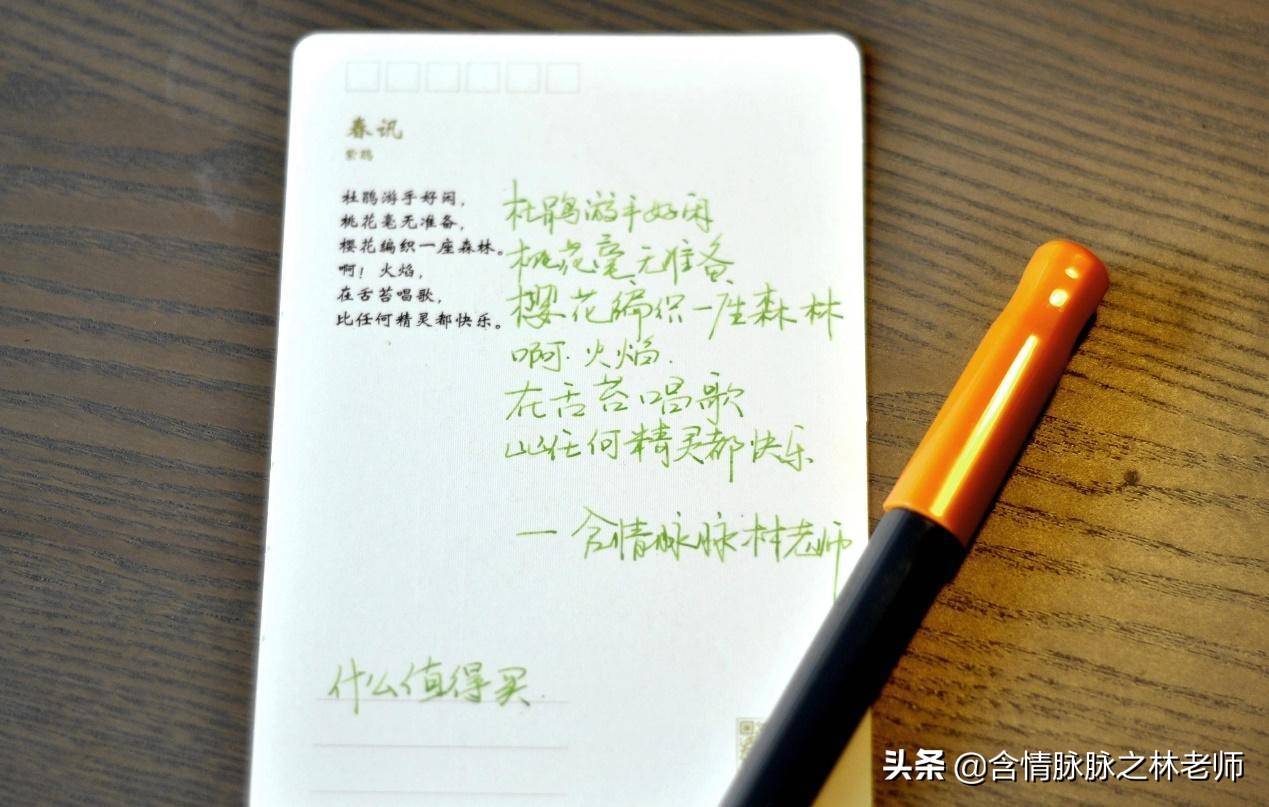 春讯
紫鹃
杜鹃游手好闲，
桃花毫无准备，
樱花编织一座森林。
啊！火焰，
在舌苔唱歌，
比任何精灵都快乐。
杜鹃游手好闲
桃花毫无准备
樱花编织一座森林
啊.火焰.
在舌苔唱歌
比任何精灵都快乐
— 含情脉脉林老师
什么值得买.
头条 @含情脉脉之林老师